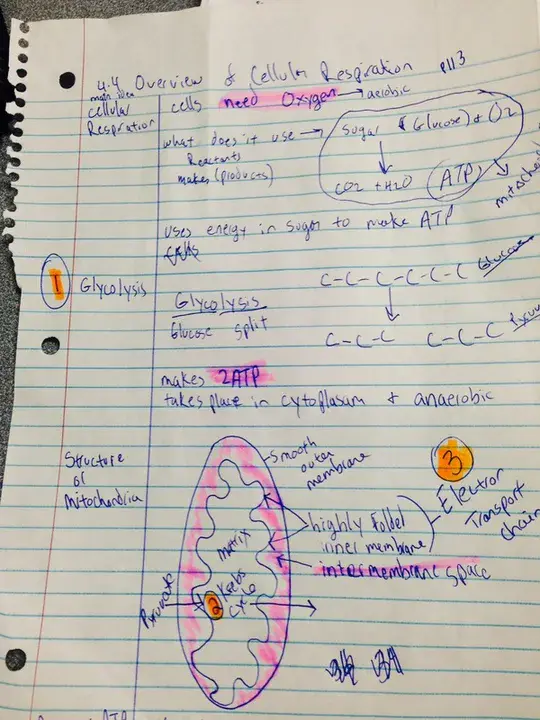 4.4 Overview of Cellular Respiration p113
main idea
cellular
Respiration
cells need Oxygen → aerobic
what does it use →
Reactants
makes (products)
Sugar (Glucose) + O2
CO2 + H2O ATP
uses energy in sugar to make ATP
1 Glycolysis
Glycolysis
Glucose split
C-C-C-C-C-C Glucose
C-C-C C-C-C
makes 2ATP
takes place in cytoplasum + anaerobic
Structure
of
Mitochondria
Smooth
outer
membrane
3
Electron
Transport
chain
highly folded
inner membrane
intermembrane space
matrix
Krebs
Cycle
2
Pyruvate